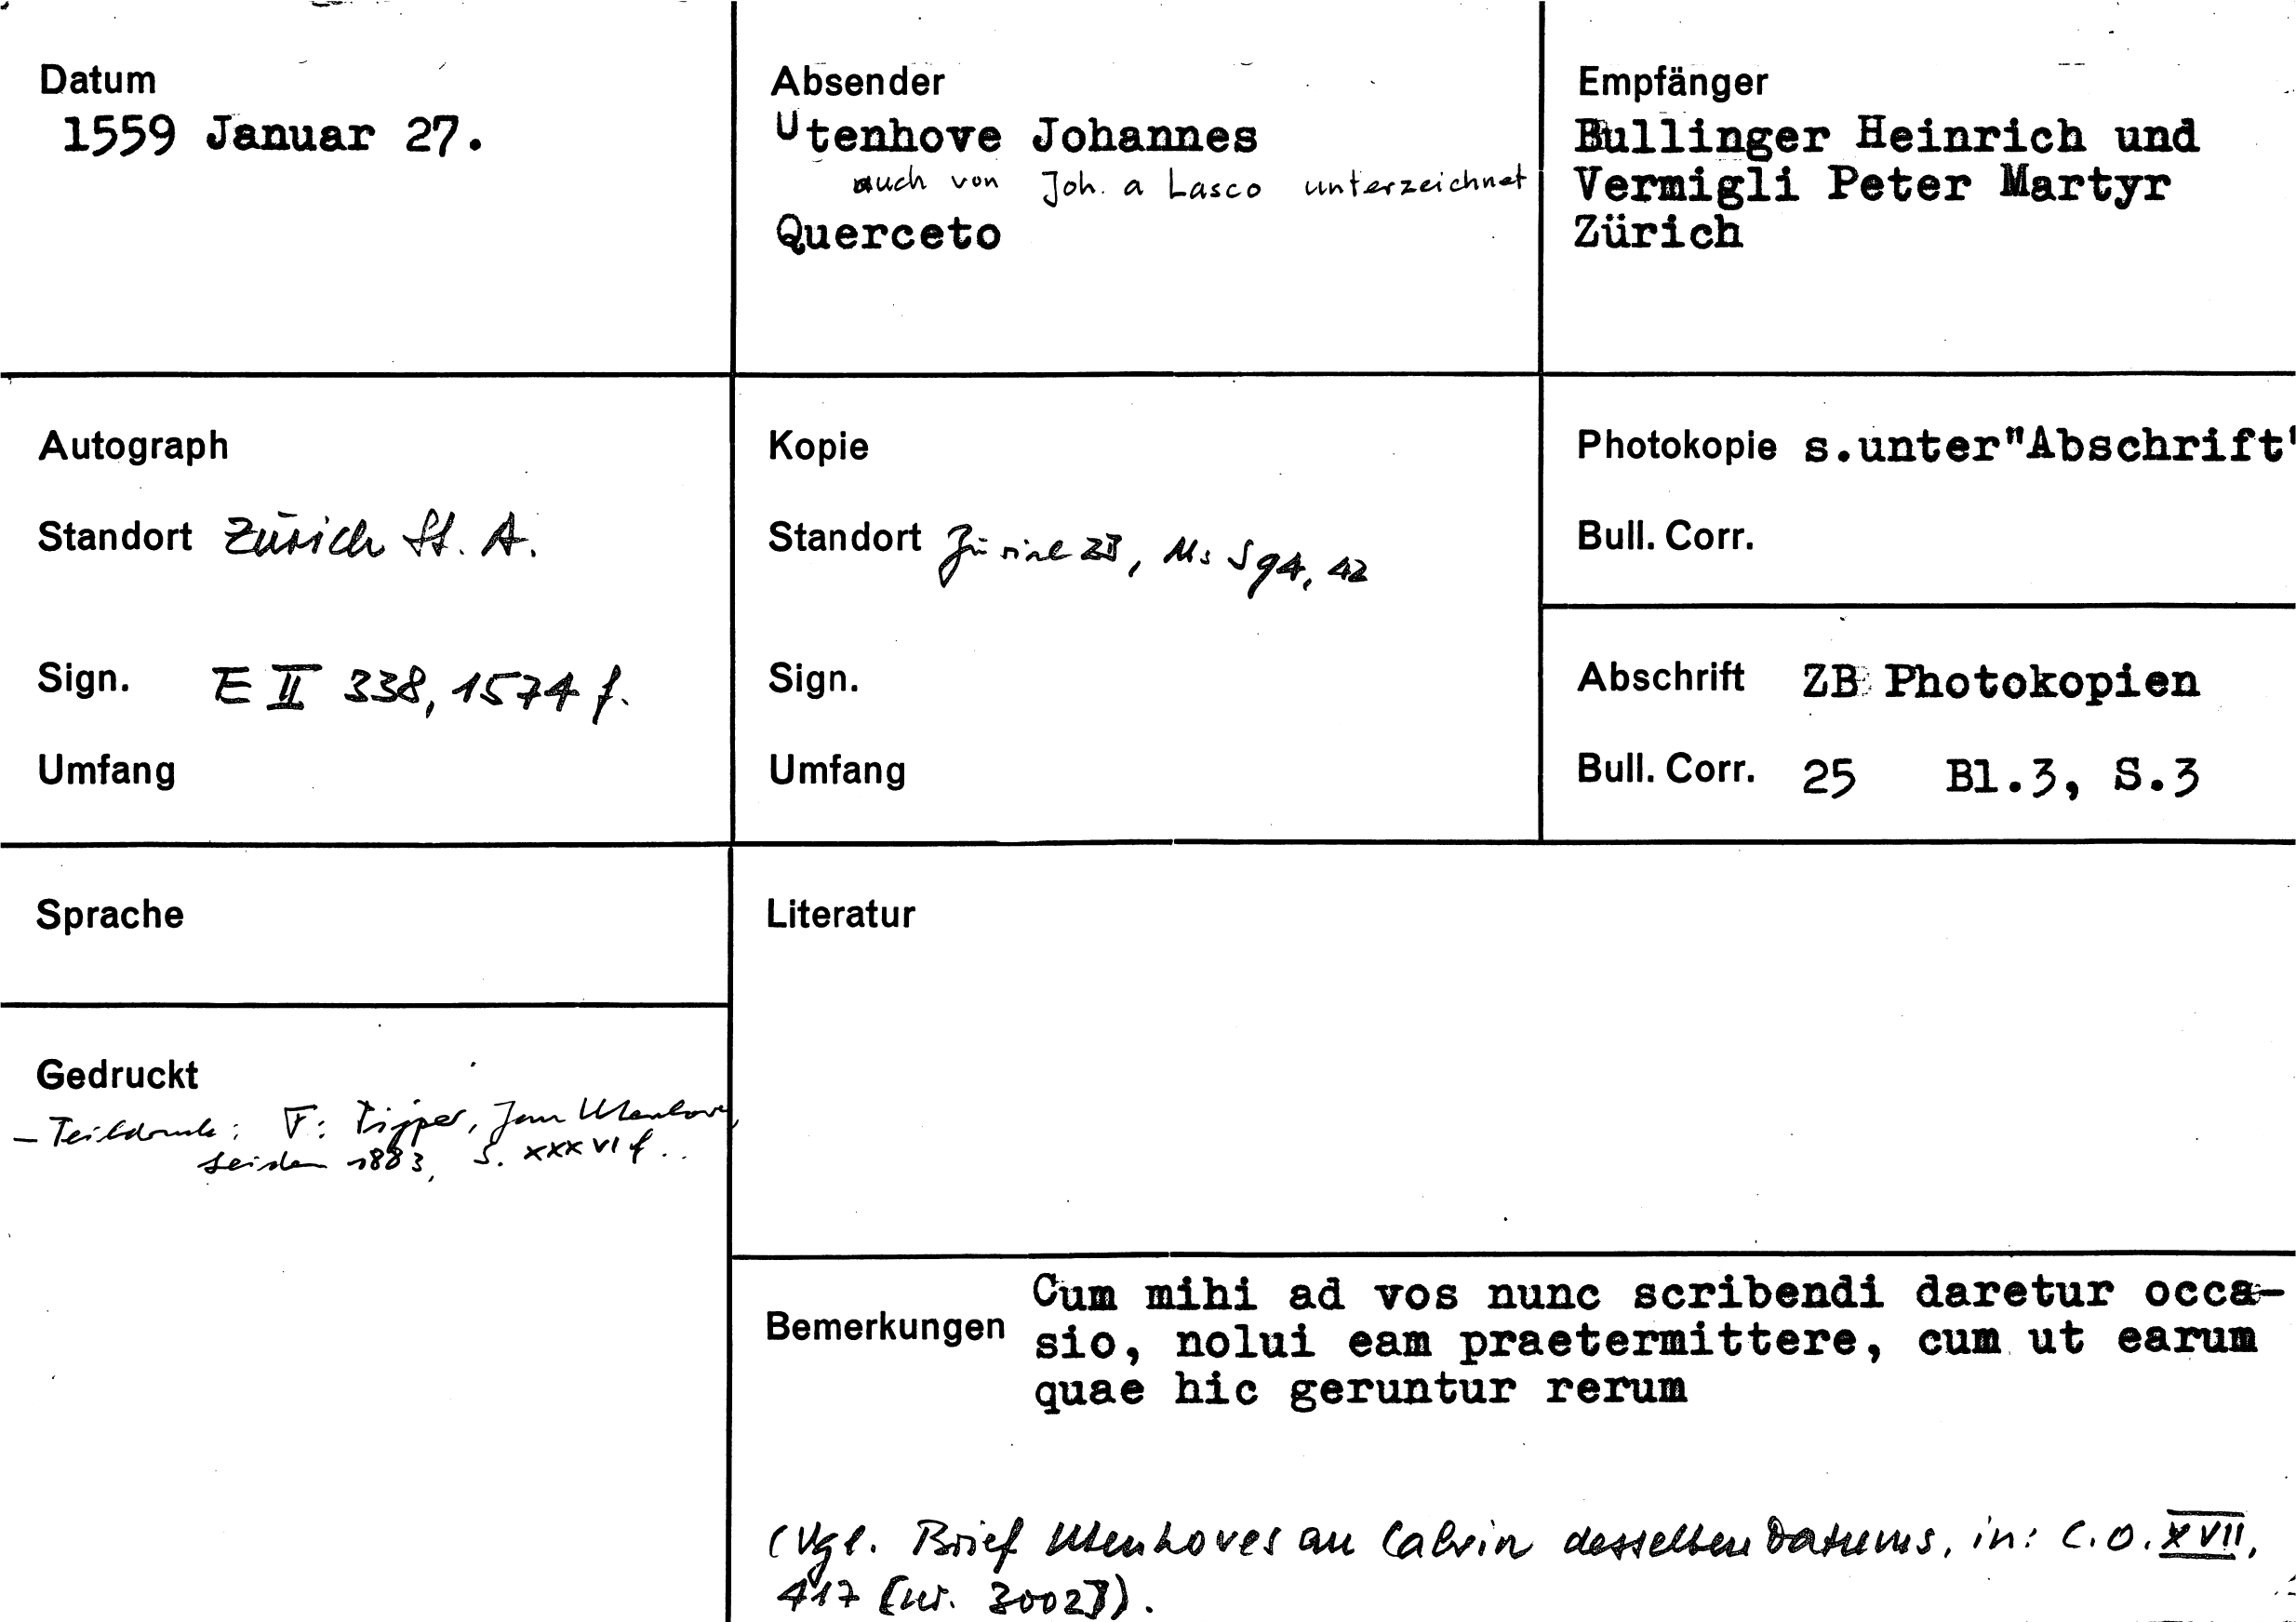 Datum
1559 Januar 27.
Absender
Utenhove Johannes
auch von Joh. a Lasco unterzeichnet
Querceto
Empfänger
Bullinger Heinrich und
Vermigli Peter Martyr
Zürich
Autograph
Standort Zürich St. A.
Sign. E II 338, 1574 f.
Umfang
Kopie
Standort Zürich ZB, Ms S 94, 42
Sign.
Umfang
Photokopie s.unter"Abschrift"
Bull. Corr.
Abschrift ZB Photokopien
Bull. Corr. 25 Bl.3, S.3
Sprache
Gedruckt
- Teildruck: F. Pijper, Jan Utenhove,
Leiden 1883, S. XXXVI f..
Literatur
Bemerkungen
Cum mihi ad vos nunc scribendi daretur occa-
sio, nolui eam praetermittere, cum ut earum
quae hic geruntur rerum
(Vgl. Brief Utenhoves an Calvin desselben Datums, in: C.O. XVII,
417 [nr. 3002]).